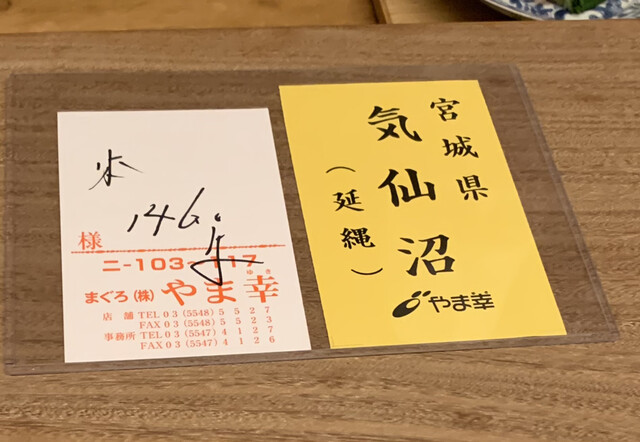 146
様
ニ-103-117
まぐろ(株)やま幸
ゆき
店舗 TEL 03 (5548) 5527
FAX 03 (5548) 5523
事務所 TEL 03 (5547) 4127
FAX 03 (5547) 4126
宮城県
気仙沼
(延縄)
やま幸